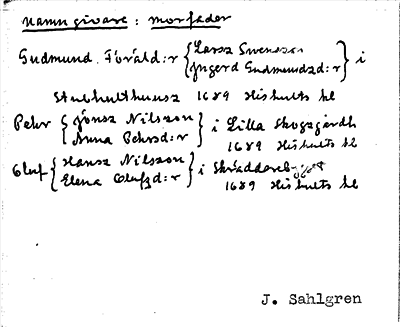 Namngivare : morfader
Gudmund. Föräld:r { Larsz Swensson
Ingerd Gudmundzd:r } i
Stubhulthuusz 1689 Hishults kl
Pehr { Jönsz Nilsson
Anna Pehrsd:r } i Lilla Skogzgårdh
1689 Hishults kl
Oluf { Hansz Nilsson
Elena Olufzd:r } i
1689 Hishults kl
J. Sahlgren